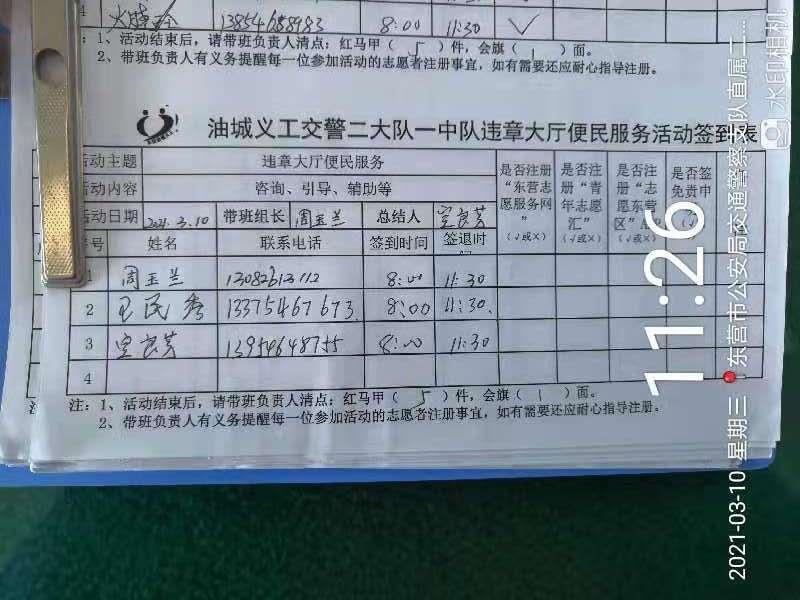 4 13854688983 8:00 11:30 √
:1、活动结束后，请带班负责人清点：红马甲（ 5 ）件，会旗（ 1 ）面。
2、带班负责人有义务提醒每一位参加活动的志愿者注册事宜，如有需要还应耐心指导注册。
油城义工交警二大队一中队违章大厅便民服务活动签到表
活动主题 违章大厅便民服务
活动内容 咨询、引导、辅助等
是否注册“东营志愿服务网”（√或×） 是否注册“青年志愿汇”（√或×） 是否注册“志愿东营区”（√或×） 是否签免责申
活动日期 2021.3.10 带班组长 周玉兰 总结人
号 姓名 联系电话 签到时间 签退时
1 周玉兰 13082613112 8:00 11:30
2 王民秀 13375467673 8:00 11:30
3 13954648755 8:00 11:30
4
注：1、活动结束后，请带班负责人清点：红马甲（ 5 ）件，会旗（ 1 ）面。
2、带班负责人有义务提醒每一位参加活动的志愿者注册事宜，如有需要还应耐心指导注册。
11:26
2021-03-10 星期三 东营市公安局交通警察支队直属二...
水印相机